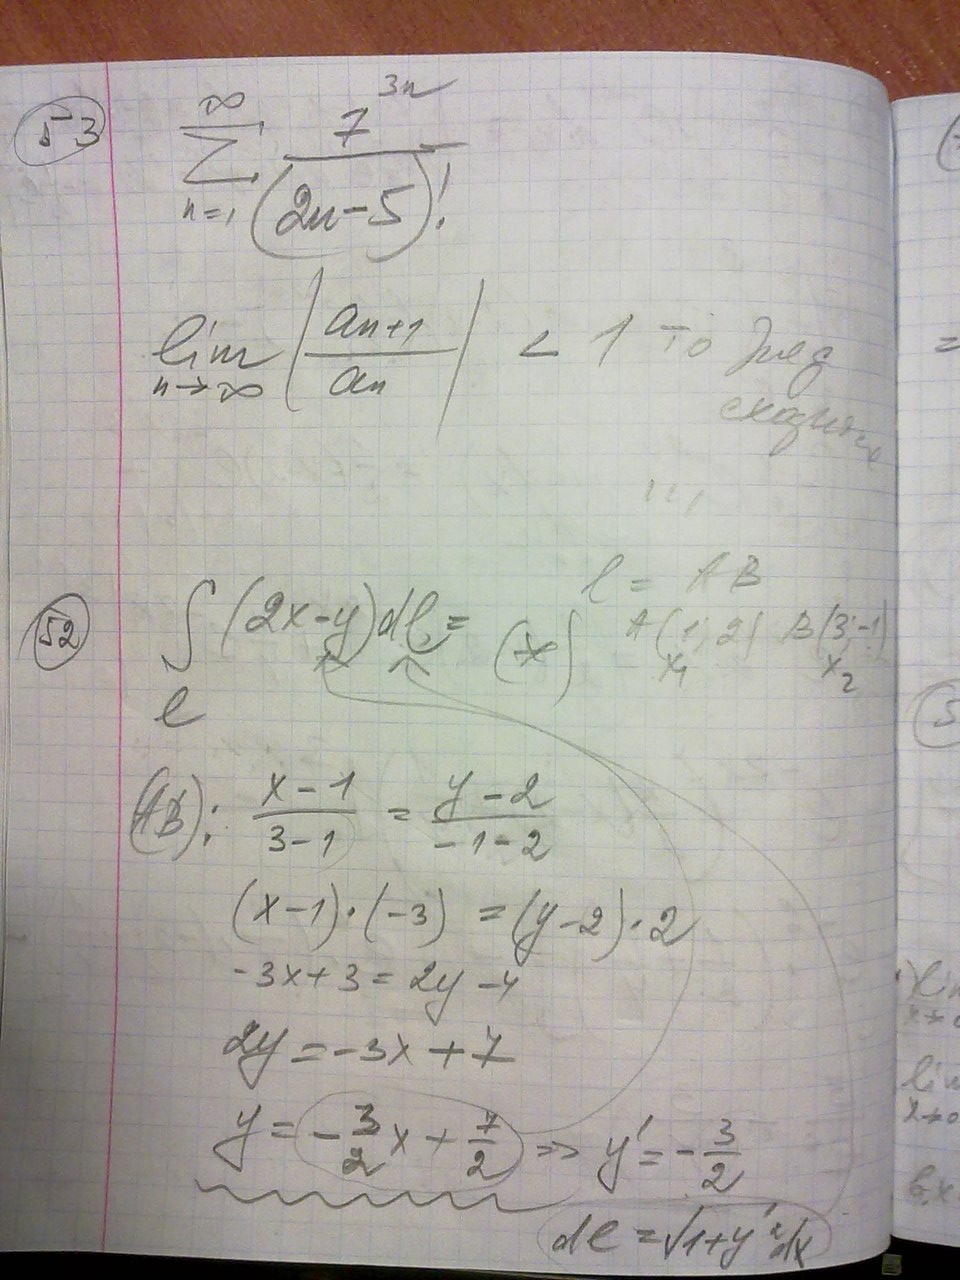 53
∞ 3n
∑ 7
n=1 (2n-5)!
lim | an+1 / an | < 1 то ряд
n→∞ сходится
52
∫ (2x-y)dl = (*) l = AB
l A(1;2) B(3;-1)
x1 x2
(AB): x-1 / 3-1 = y-2 / -1-2
(x-1)·(-3) = (y-2)·2
-3x+3 = 2y-4
2y = -3x+7
y = -3/2 x + 7/2 => y' = -3/2
dl = √1+y'² dx
=
lim
x→0
lim
x→0